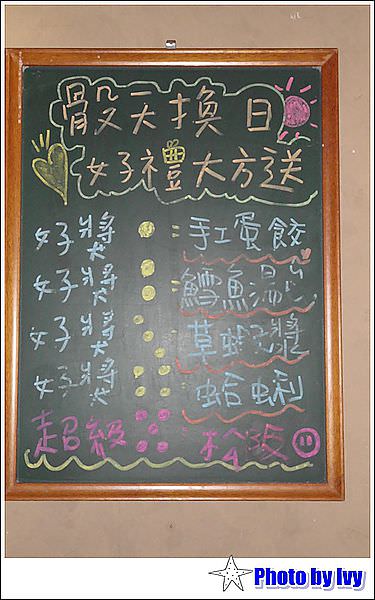 骰天換日
好禮大方送
好獎 手工蛋餃
好獎 魚
好獎 草蝦
好獎 蛤蜊
超級 松阪
Photo by Ivy